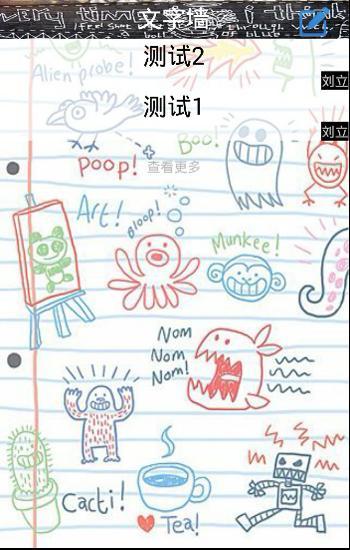 文字墙
测试2
Alien probe!
刘立
测试1
刘立
Boo!
Poop!
查看更多
Art!
Bloop!
Munkee!
Nom
Nom
Nom!
Cacti!
Tea!